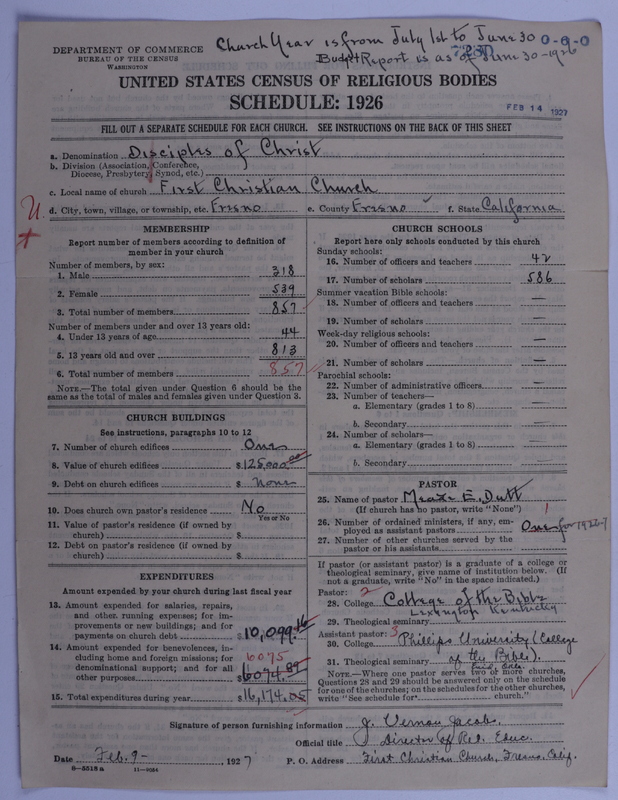 Church Year is from July 1st to June 30
0-6-0
Budget Report is as of June 30-1926
7230
DEPARTMENT OF COMMERCE
BUREAU OF THE CENSUS
WASHINGTON
UNITED STATES CENSUS OF RELIGIOUS BODIES
SCHEDULE: 1926
FEB 14 1927
FILL OUT A SEPARATE SCHEDULE FOR EACH CHURCH. SEE INSTRUCTIONS ON THE BACK OF THIS SHEET
a. Denomination Disciples of Christ
b. Division (Association, Conference,
Diocese, Presbytery, Synod, etc.)
c. Local name of church First Christian Church
d. City, town, village, or township, etc. Fresno e. County Fresno f. State California
U.
MEMBERSHIP
Report number of members according to definition of
member in your church
Number of members, by sex:
1. Male 318
2. Female 539
3. Total number of members 857
Number of members under and over 13 years old:
4. Under 13 years of age 44
5. 13 years old and over 813
6. Total number of members 857
NOTE.—The total given under Question 6 should be the
same as the total of males and females given under Question 3.
CHURCH BUILDINGS
See instructions, paragraphs 10 to 12
7. Number of church edifices One
8. Value of church edifices $125,000.00
9. Debt on church edifices $ None
10. Does church own pastor's residence No
Yes or No
11. Value of pastor's residence (if owned by
church) $
12. Debt on pastor's residence (if owned by
church) $
EXPENDITURES
Amount expended by your church during last fiscal year
13. Amount expended for salaries, repairs,
and other running expenses; for im-
provements or new buildings; and for
payments on church debt $10,099.16
14. Amount expended for benevolences, in-
cluding home and foreign missions; for 6075
denominational support; and for all
other purposes $6074.89
15. Total expenditures during year $16,174.05
CHURCH SCHOOLS
Report here only schools conducted by this church
Sunday schools:
16. Number of officers and teachers 42
17. Number of scholars 586
Summer vacation Bible schools:
18. Number of officers and teachers —
19. Number of scholars —
Week-day religious schools:
20. Number of officers and teachers —
21. Number of scholars —
Parochial schools:
22. Number of administrative officers —
23. Number of teachers—
a. Elementary (grades 1 to 8) —
b. Secondary —
24. Number of scholars—
a. Elementary (grades 1 to 8) —
b. Secondary —
PASTOR
25. Name of pastor E. Dutt
(If church has no pastor, write "None") 1
26. Number of ordained ministers, if any, em-
ployed as assistant pastors One for 1926-7
27. Number of other churches served by the
pastor or his assistants
If pastor (or assistant pastor) is a graduate of a college or
theological seminary, give name of institution below. (If
not a graduate, write "No" in the space indicated.)
Pastor: 2
28. College College of the Bible
Lexington Kentucky
29. Theological seminary
Assistant pastor: 3
30. College Phillips University (College
of the Bible).
31. Theological seminary
NOTE.—Where one pastor serves two or more churches,
Questions 28 and 29 should be answered only on the schedule
for one of the churches; on the schedules for the other churches,
write "See schedule for church."
Signature of person furnishing information J. Vernon Jacob
Official title Director of Rel. Educ.
Date Feb. 9- 1927 P. O. Address First Christian Church, Fresno, Calif.
6-5518a 11-9054